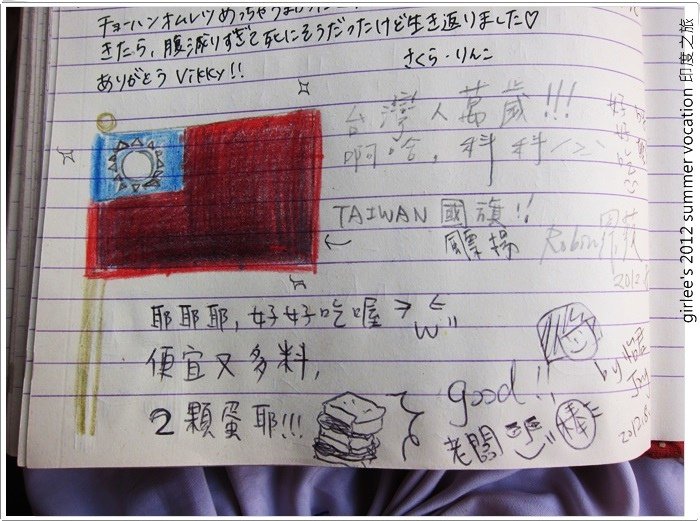 チョーハンオムレツめっちゃうま
きたら、腹減りすぎて死にそうだったけど生き返りました♡
ありがとう Vikky!!
さくら・りんこ
台灣人萬歲!!!
啊哈,科科
TAIWAN 國旗!!
飄揚
Robin
2012.8
耶耶耶,好好吃喔 >w<"
便宜又多料,
2顆蛋耶!!!
good!!
老闆
棒
by
Joy
2012.8
girlee's 2012 summer vocation 印度之旅